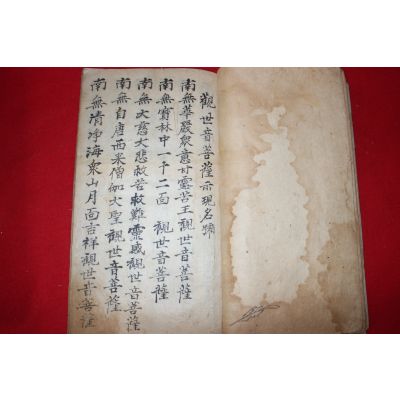 觀世音菩薩示現名號
南無華嚴衆意甘露苦王觀世音菩薩
南無寶林中一千二面 觀世音菩薩
南無大慈大悲救苦救難靈感觀世音菩薩
南無自唐西來僧伽大聖觀世音菩薩
南無清淨海衆山月面吉祥觀世音菩薩